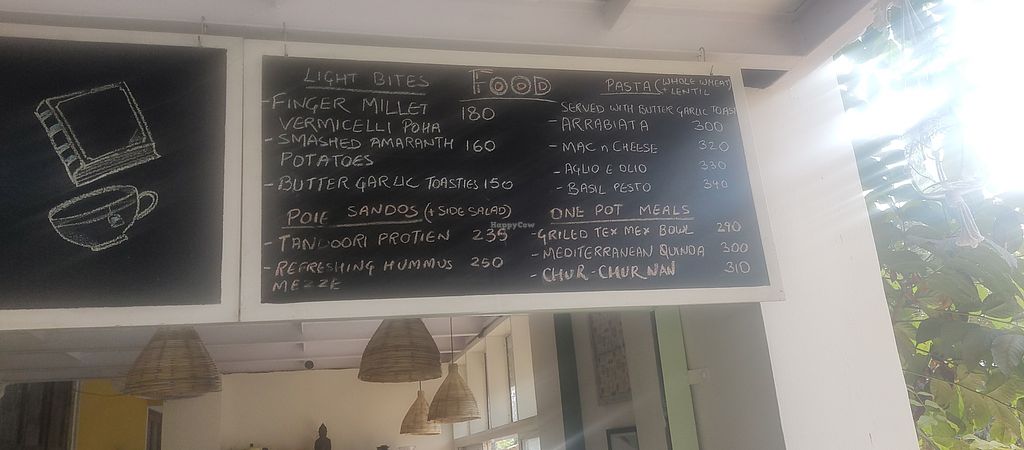 FOOD
LIGHT BITES
- FINGER MILLET 180
VERMICELLI POHA
- SMASHED AMARANTH 160
POTATOES
- BUTTER GARLIC TOASTIES 150
POIE SANDOS (+ SIDE SALAD)
- TANDOORI PROTIEN 235
- REFRESHING HUMMUS 250
MEZZE
PASTA (WHOLE WHEAT
+ LENTIL
SERVED WITH BUTTER GARLIC TOAST
- ARRABIATA 300
- MAC n CHEESE 320
- AGLIO E OLIO 330
- BASIL PESTO 340
ONE POT MEALS
- GRILED TEX MEX BOWL 290
- MEDITERRANEAN QUINOA 300
- CHUR-CHUR NAN 310
HappyCow